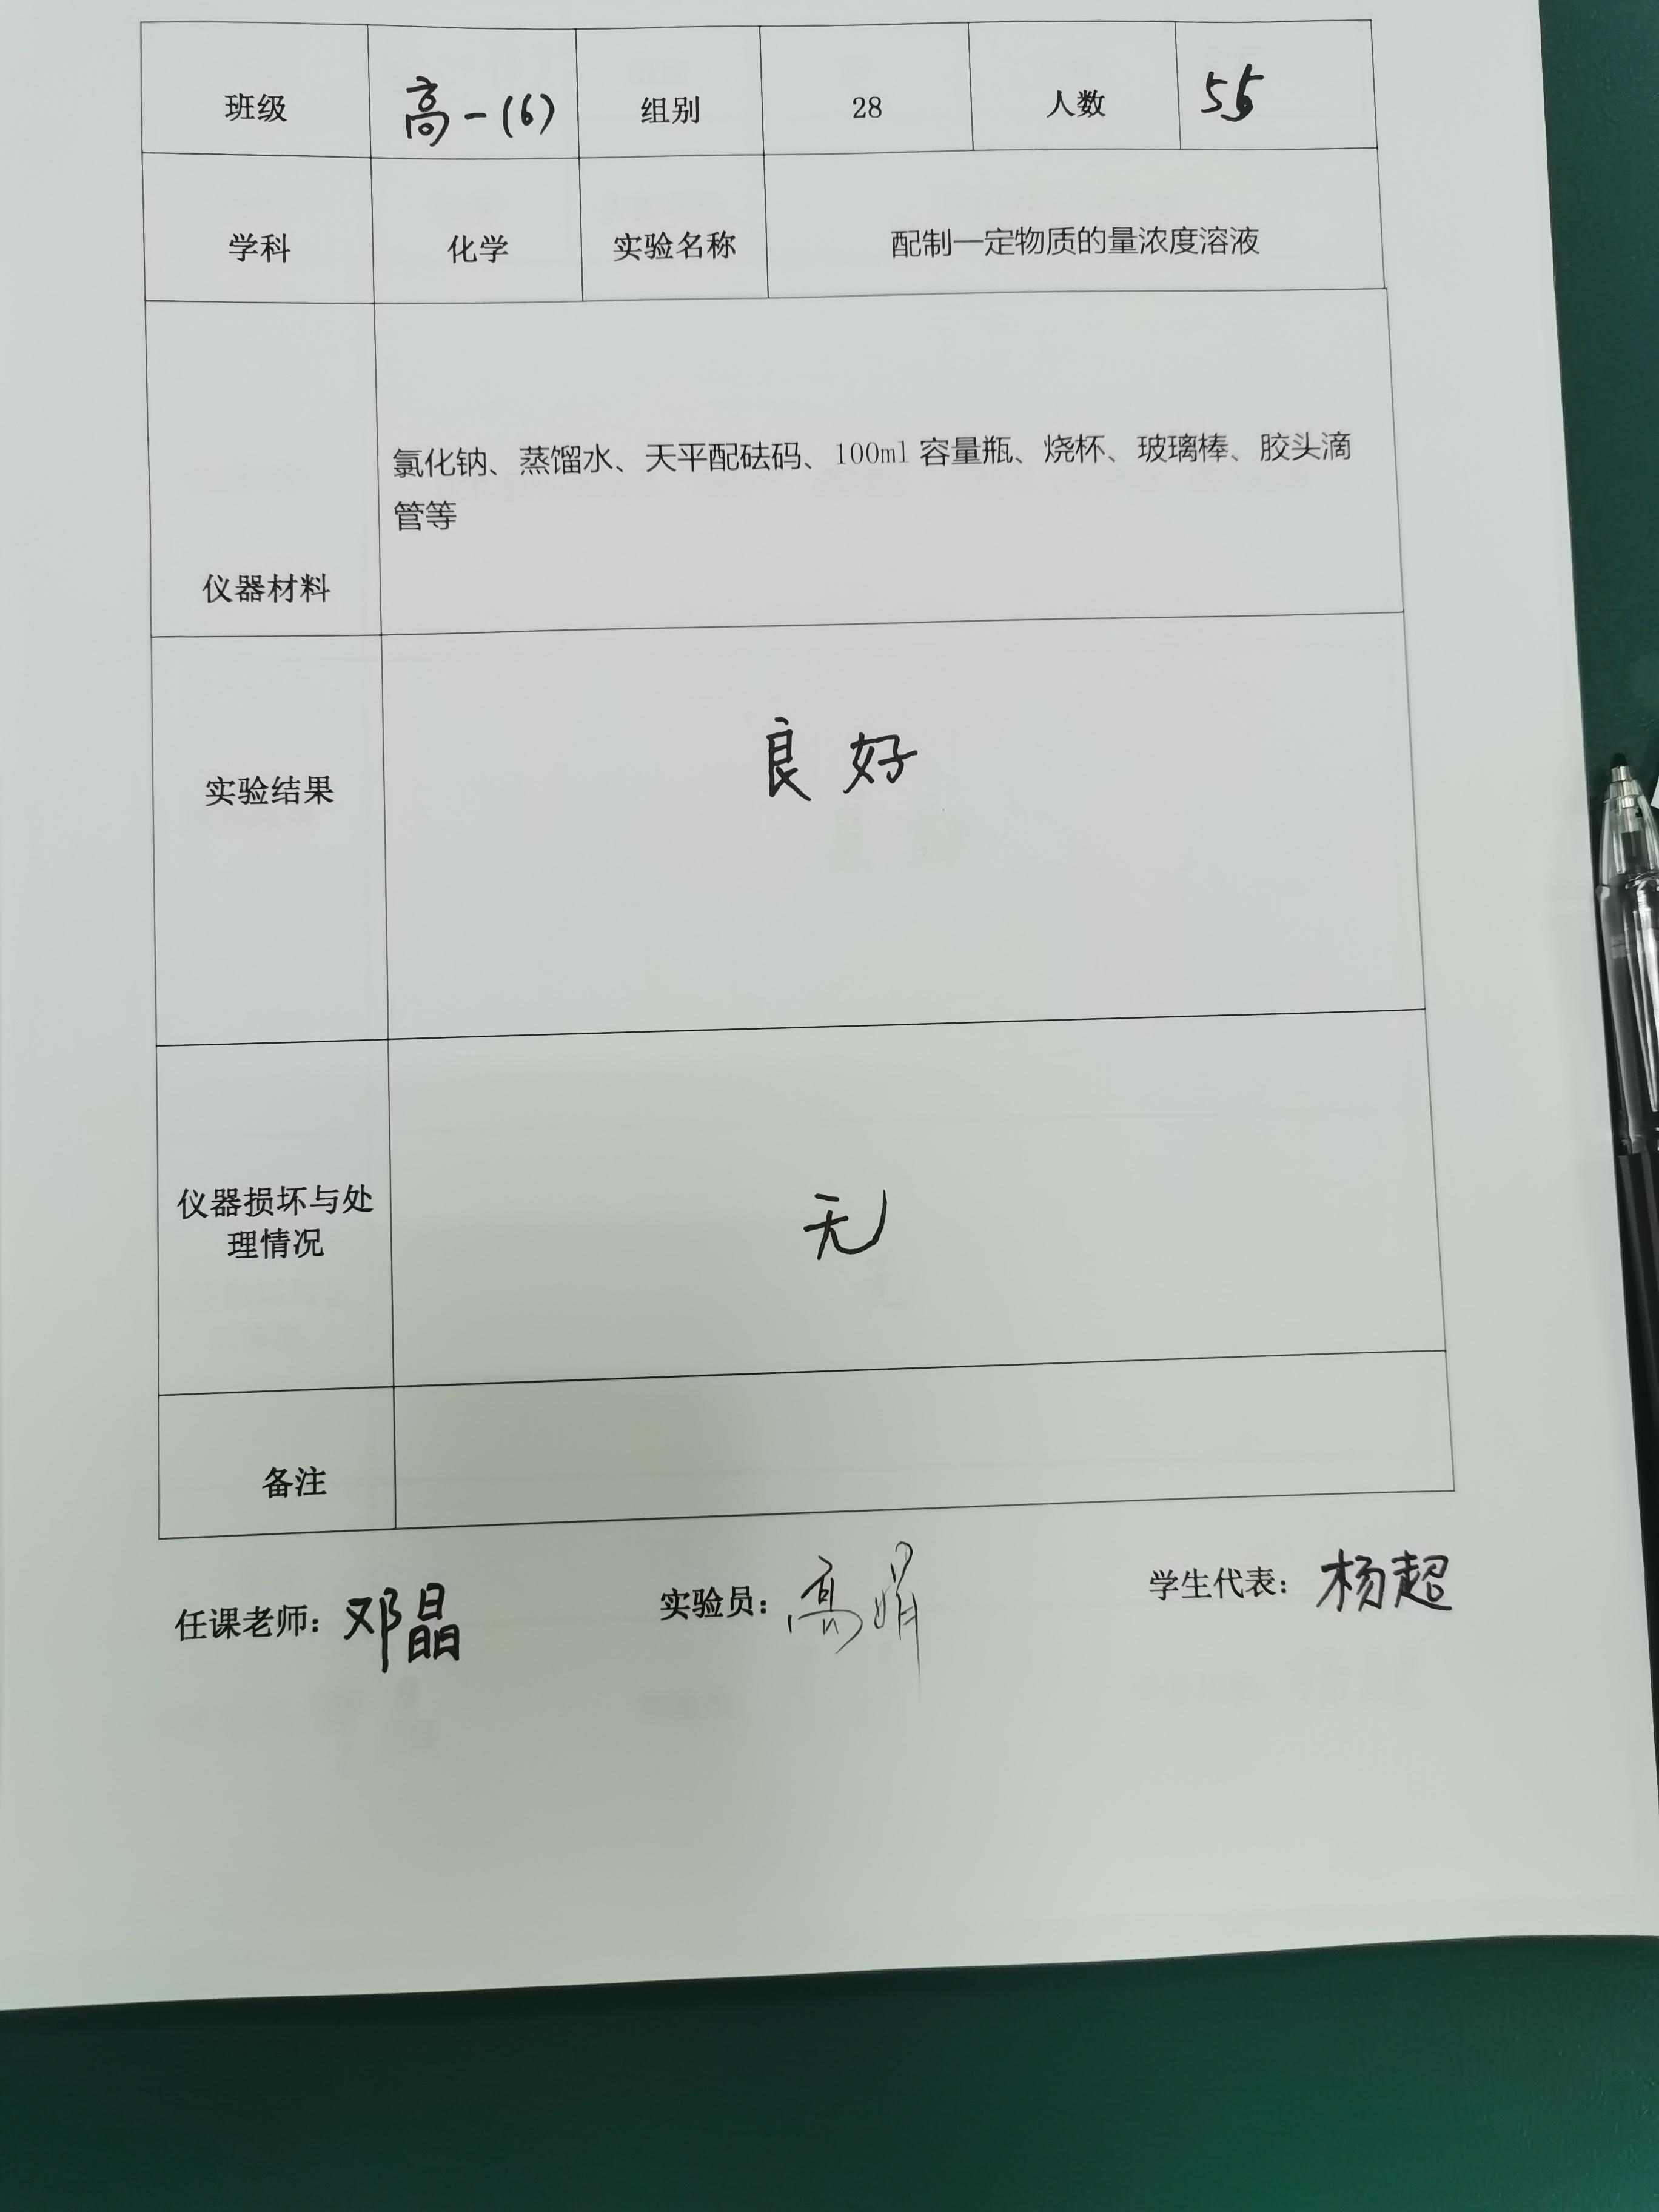 班级 高一(6) 组别 28 人数 55
学科 化学 实验名称 配制一定物质的量浓度溶液
氯化钠、蒸馏水、天平配砝码、100ml 容量瓶、烧杯、玻璃棒、胶头滴
管等
仪器材料
实验结果 良好
仪器损坏与处
理情况
无
备注
任课老师: 邓晶 实验员: 高娟 学生代表: 杨超